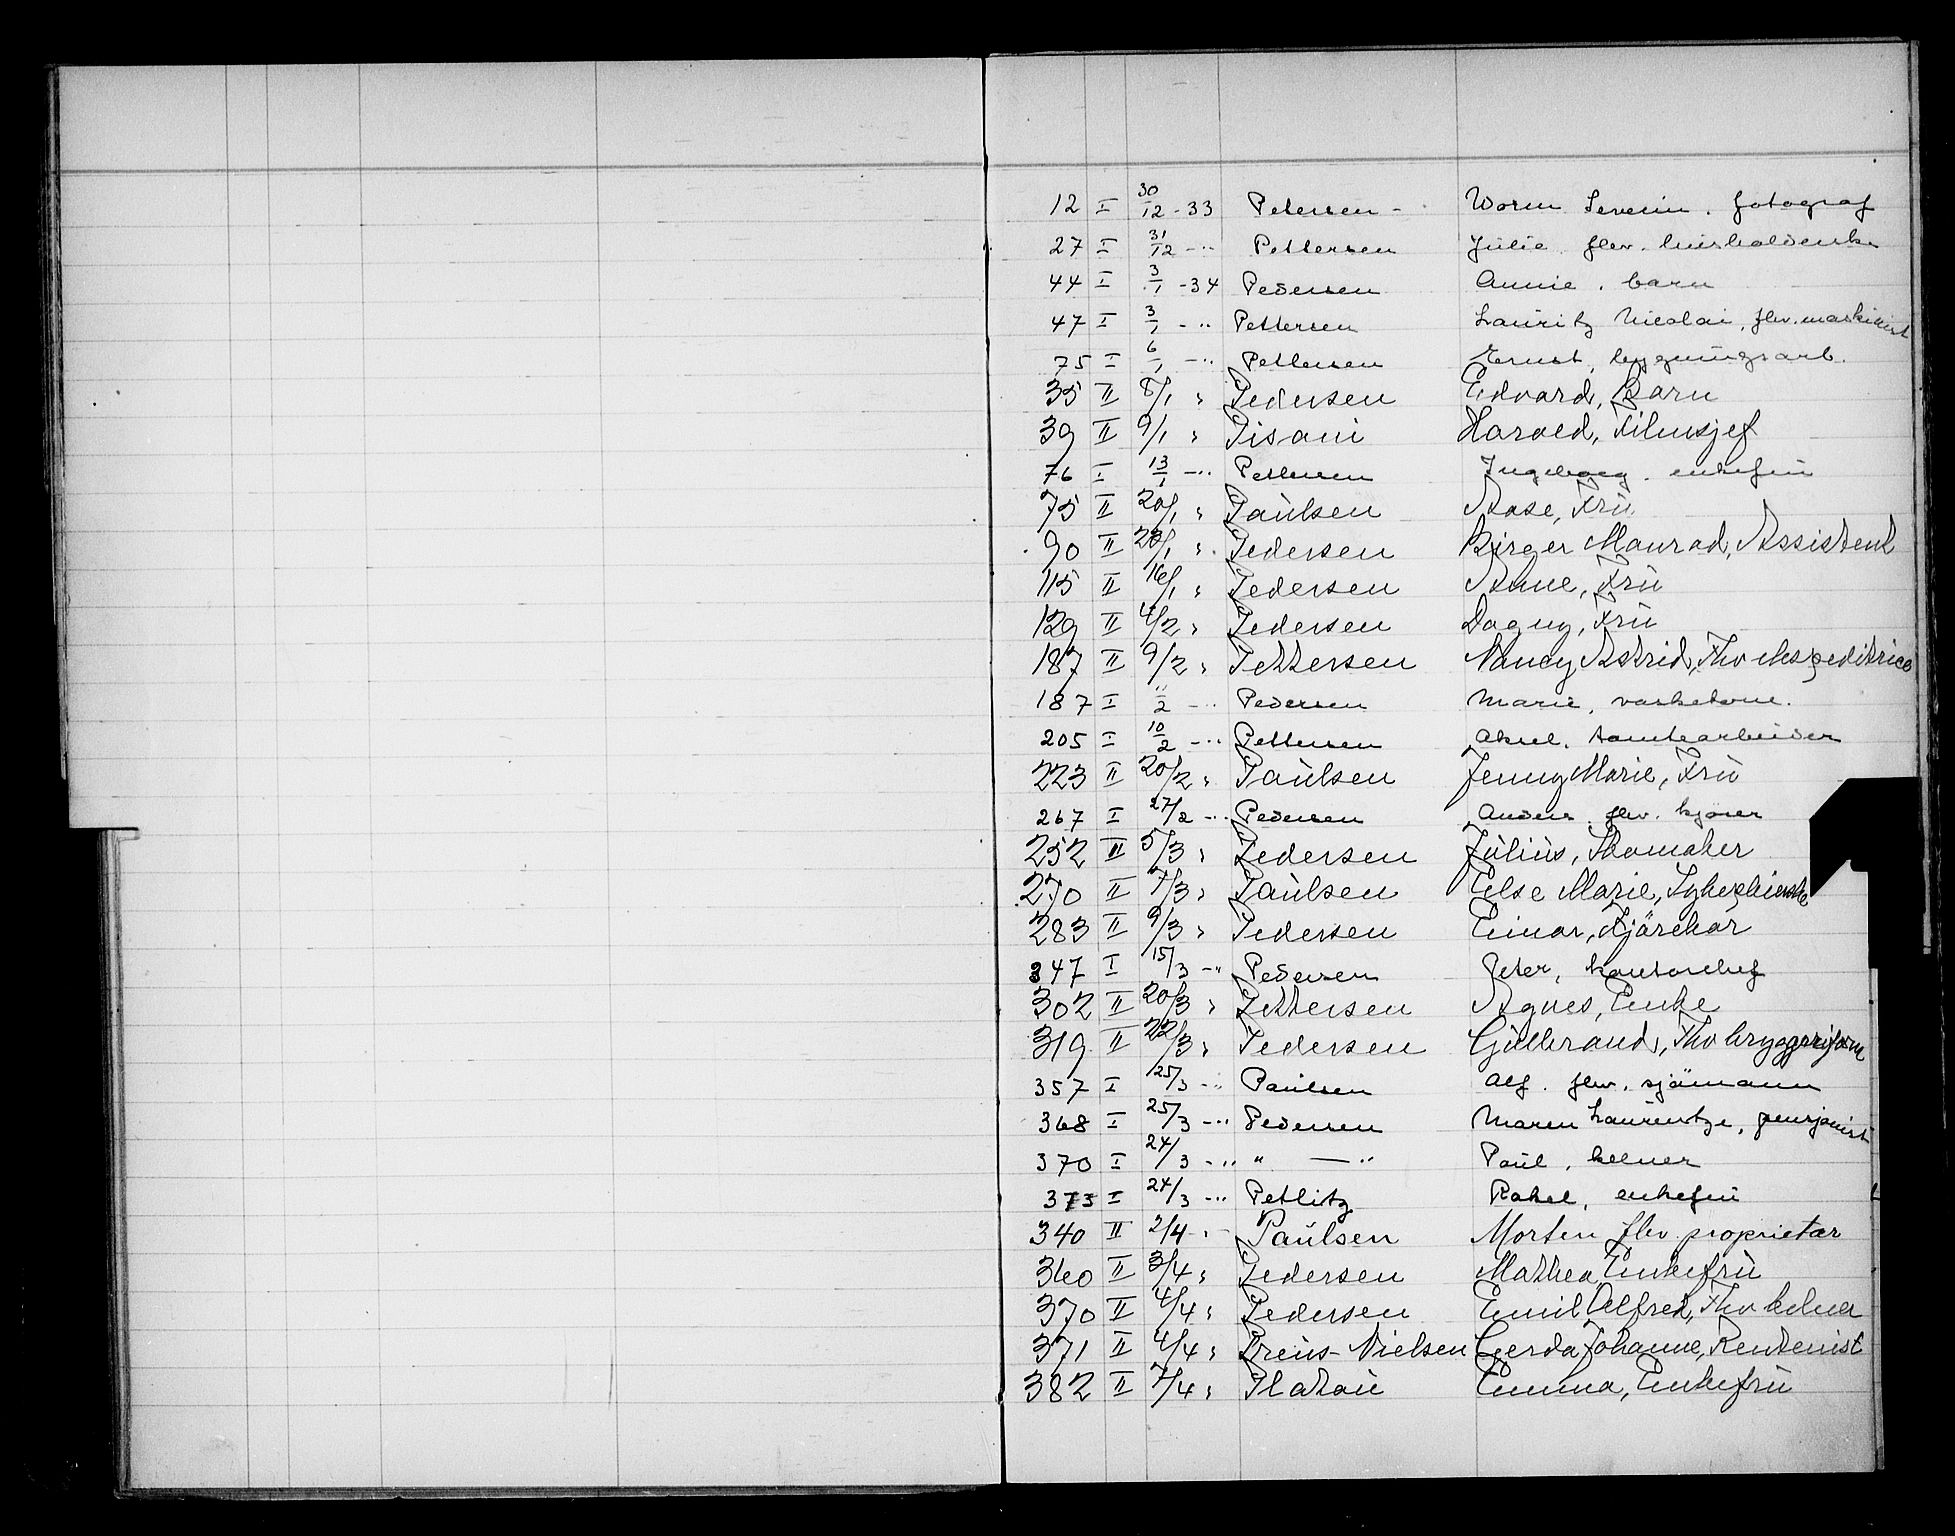 12 I 30/12 - 33 Petersen - Worm Severin. fotograf
27 I 31/12 - " Pettersen Julie flev. husholderske
44 I 3/1 - 34 Pedersen Annie. barn
47 I 3/1 - " Pettersen Lauritz Nicolai, flv. maskinist
75 I 6/1 - " Pettersen Ernst, bygningsarb.
35 II 8/1 " Pedersen Edvard, Barn
39 II 9/1 " Pisani Harald, Filmsjef
76 I 13/1 - " Pettersen Ingeborg. enkefru
75 II 20/1 " Paulsen Aase, Fru
90 II 23/1 " Pedersen Birger Monrad, Assistent
115 II 16/1 " Pedersen Anne, Fru
129 II 4/2 " Pedersen Dagny, Fru
187 II 9/2 " Pettersen Nancy Astrid, Fhv ekspeditrice
187 I "/2 - " Pedersen Marie, vaskekone.
205 I 10/2 - " Pettersen Aksel. tomtearbeider
223 II 20/2 " Paulsen Jenny Marie, Fru
267 I 27/2 - " Pedersen Anders. flv. kjører
252 II 5/3 " Pedersen Julius, Skomaker
270 II 7/3 " Paulsen Else Marie, Sykepleierske
283 II 9/3 " Pedersen Einar,
347 I 15/3 - " Pedersen Peter, kontorchef
302 II 20/3 " Pettersen Agnes, Enke
319 II 22/3 " Pedersen Gulbrand, Fhv
357 I 25/3 - " Paulsen Alf. flv. sjömann
368 I 25/3 - " Pedersen Maren Laurentze, pensjonist
370 I 24/3 - " " — " Paul, kelner
373 I 24/3 - " Petlitz Rakel, enkefru
340 II 2/4 - " - Paulsen Morten flv proprietær
360 II 3/4 " Pedersen Mathea, Enkefru
370 II 4/4 " Pedersen Emil Alfred, Fhv kelner
371 II 4/4 " Preus-Nielsen Gerda Johanne, Rentenist
382 II 7/4 " Platou Emma, Enkefru